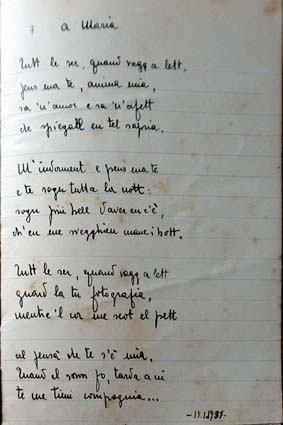 7 A Maria
Tutt le ser, quand vagg a lett.
pens ma te, anima mia,
sa 'n'amor e sa 'n'afett
che spiegatt en tel sapria.
M'indorment e pens ma te
e te sogn tutta la nott:
sogn più bell d'aver en c'è,
ch'en me svegghien manc i bott.
Tutt le ser, quand vagg a lett
guard la tu fotografia,
mentre 'l cor me scot el pett
nel pensà che te s'è mia.
Quand el sonn po, tarda a nì
te me tieni compagnia...